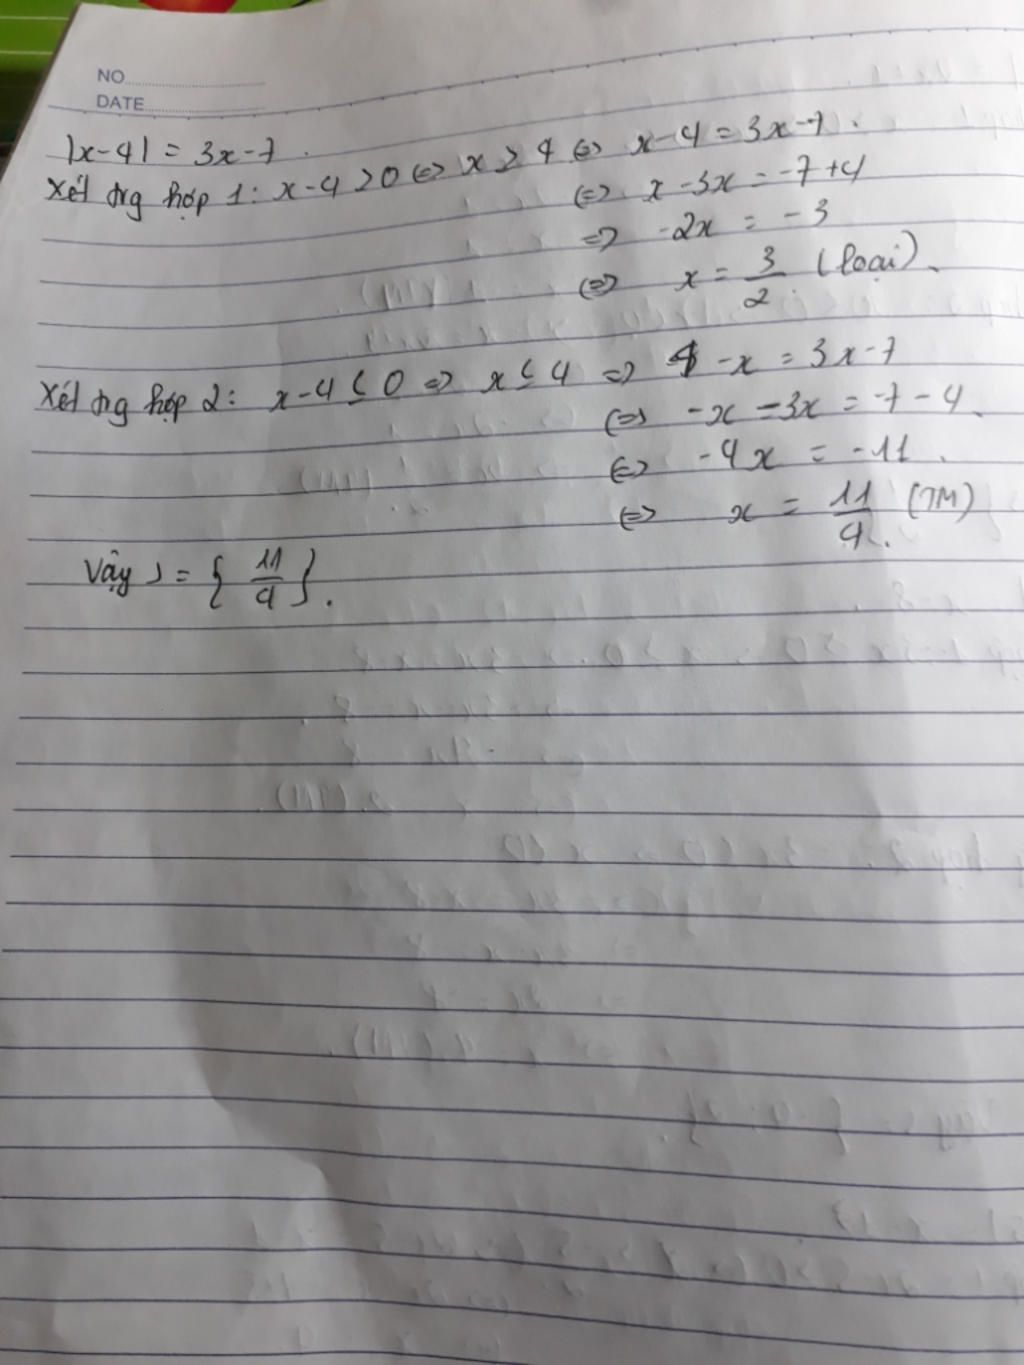 NO
DATE
|x-4| = 3x-7.
Xét trg hợp 1: x-4>0 ⇔ x>4 ⇔ x-4 = 3x-7.
⇔ x-3x = -7+4
⇒ -2x = -3
⇔ x = 3/2 (loại).
Xét trg hợp 2: x-4≤0 ⇒ x≤4 ⇒ 4-x = 3x-7
⇔ -x-3x = -7-4.
⇔ -4x = -11.
⇔ x = 11/4 (TM)
Vậy S = {11/4}.